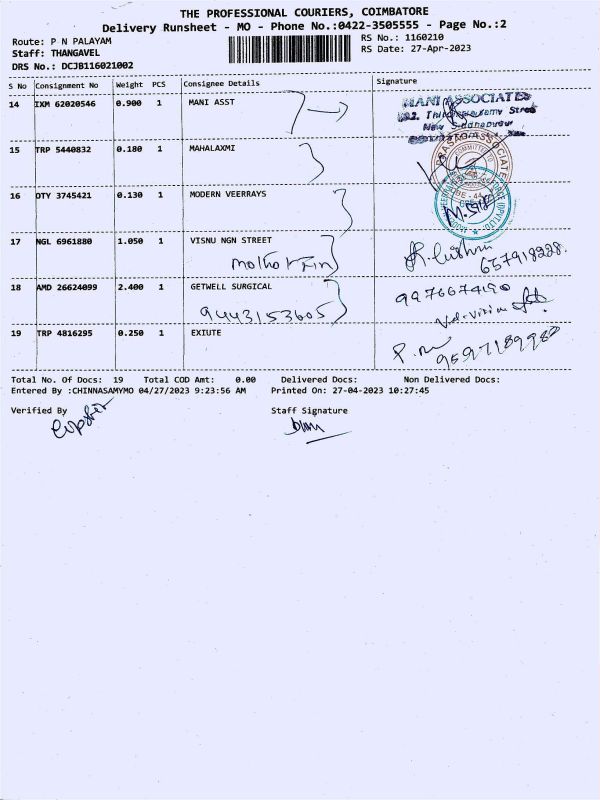 THE PROFESSIONAL COURIERS, COIMBATORE
Delivery Runsheet - MO - Phone No.:0422-3505555 - Page No.:2
Route: P N PALAYAM
Staff: THANGAVEL
DRS No.: DCJB116021002
RS No.: 1160210
RS Date: 27-Apr-2023
S No Consignment No Weight PCS Consignee Details Signature
14 IXM 62020546 0.900 1 MANI ASST
MANI ASSOCIATES
15 TRP 5440832 0.180 1 MAHALAXMI
16 OTY 3745421 0.130 1 MODERN VEERRAYS
17 NGL 6961880 1.050 1 VISNU NGN STREET
18 AMD 26624099 2.400 1 GETWELL SURGICAL
9443153605
9976674190
19 TRP 4816295 0.250 1 EXIUTE
Total No. Of Docs: 19 Total COD Amt: 0.00 Delivered Docs: Non Delivered Docs:
Entered By :CHINNASAMYMO 04/27/2023 9:23:56 AM Printed On: 27-04-2023 10:27:45
Verified By Staff Signature